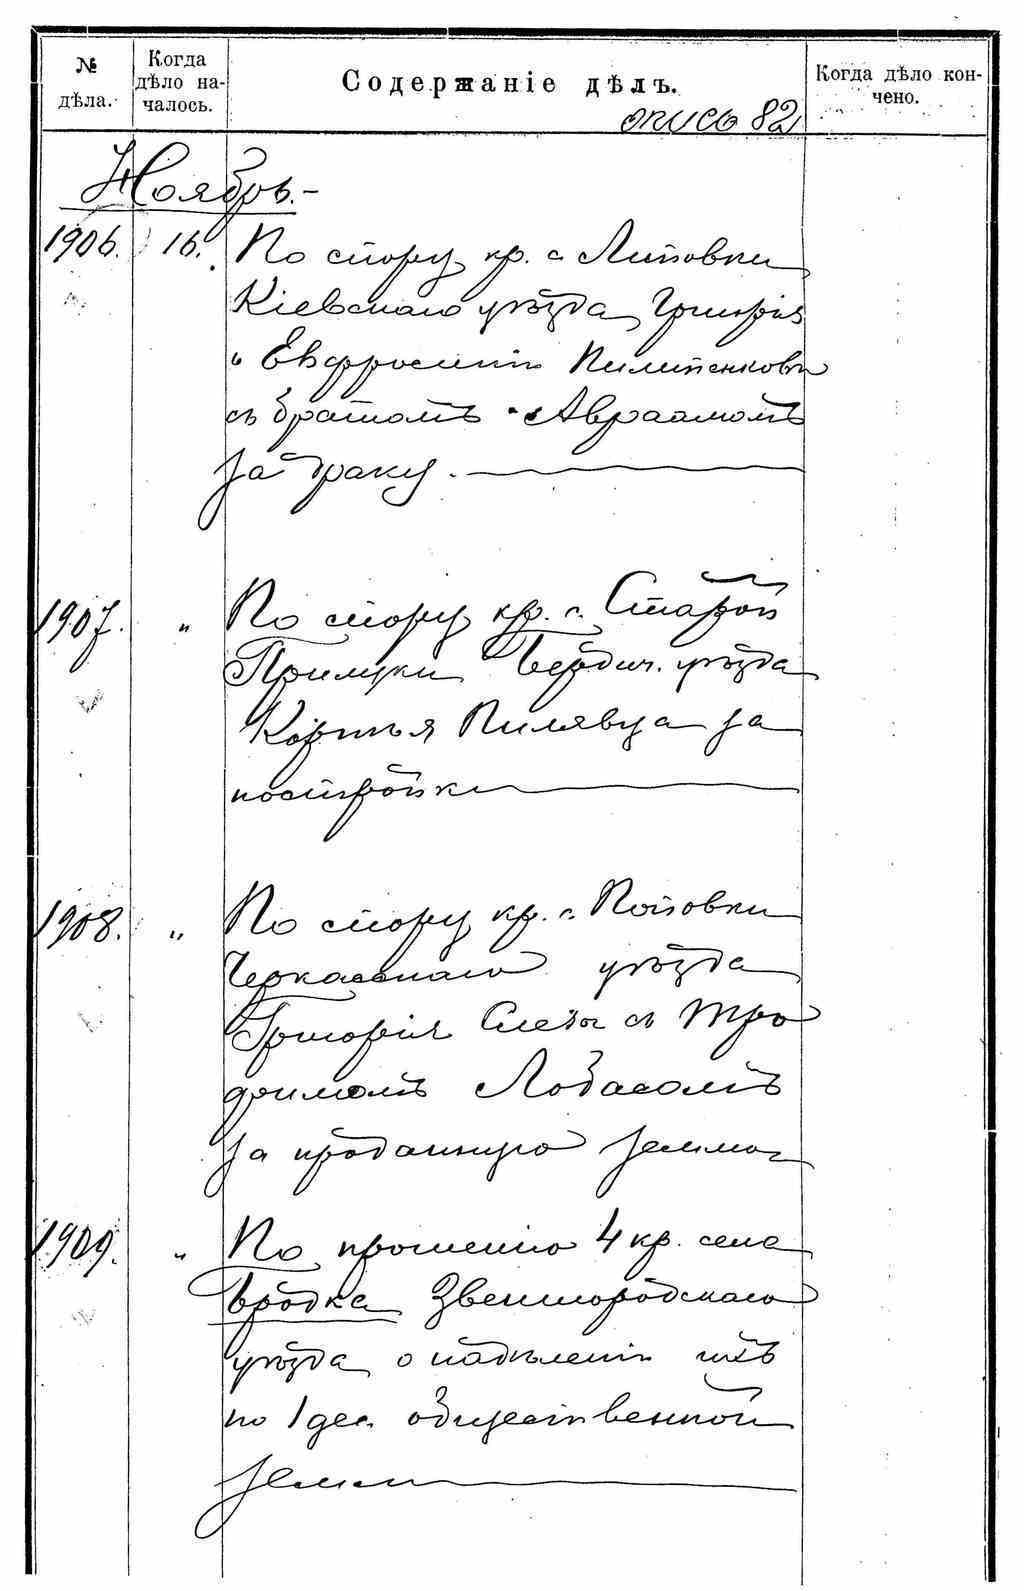 № дѣла.
Когда дѣло началось.
Содержаніе дѣлъ.
Когда дѣло кончено.
опись 82
Ноябрь.-
1906. 16. По спору кр. с. Литовки
Кіевскаго уѣзда Григорія
и Евфросиніи Пилипенковы
съ братомъ Авраамомъ
за драку.
1907. " По спору кр. с. Старой
Прилуки Бердич. уѣзда
Корнѣя Пилявца за
постройки
1908. " По спору кр. с. Поповки
Черкасскаго уѣзда
Григорія Слезы съ Тро
фимомъ Лобасомъ
за проданную землю
1909. " По прошенію 4 кр. села
Бродка Звенигородскаго
уѣзда о надѣленіи ихъ
по 1 дес. общественной
земли